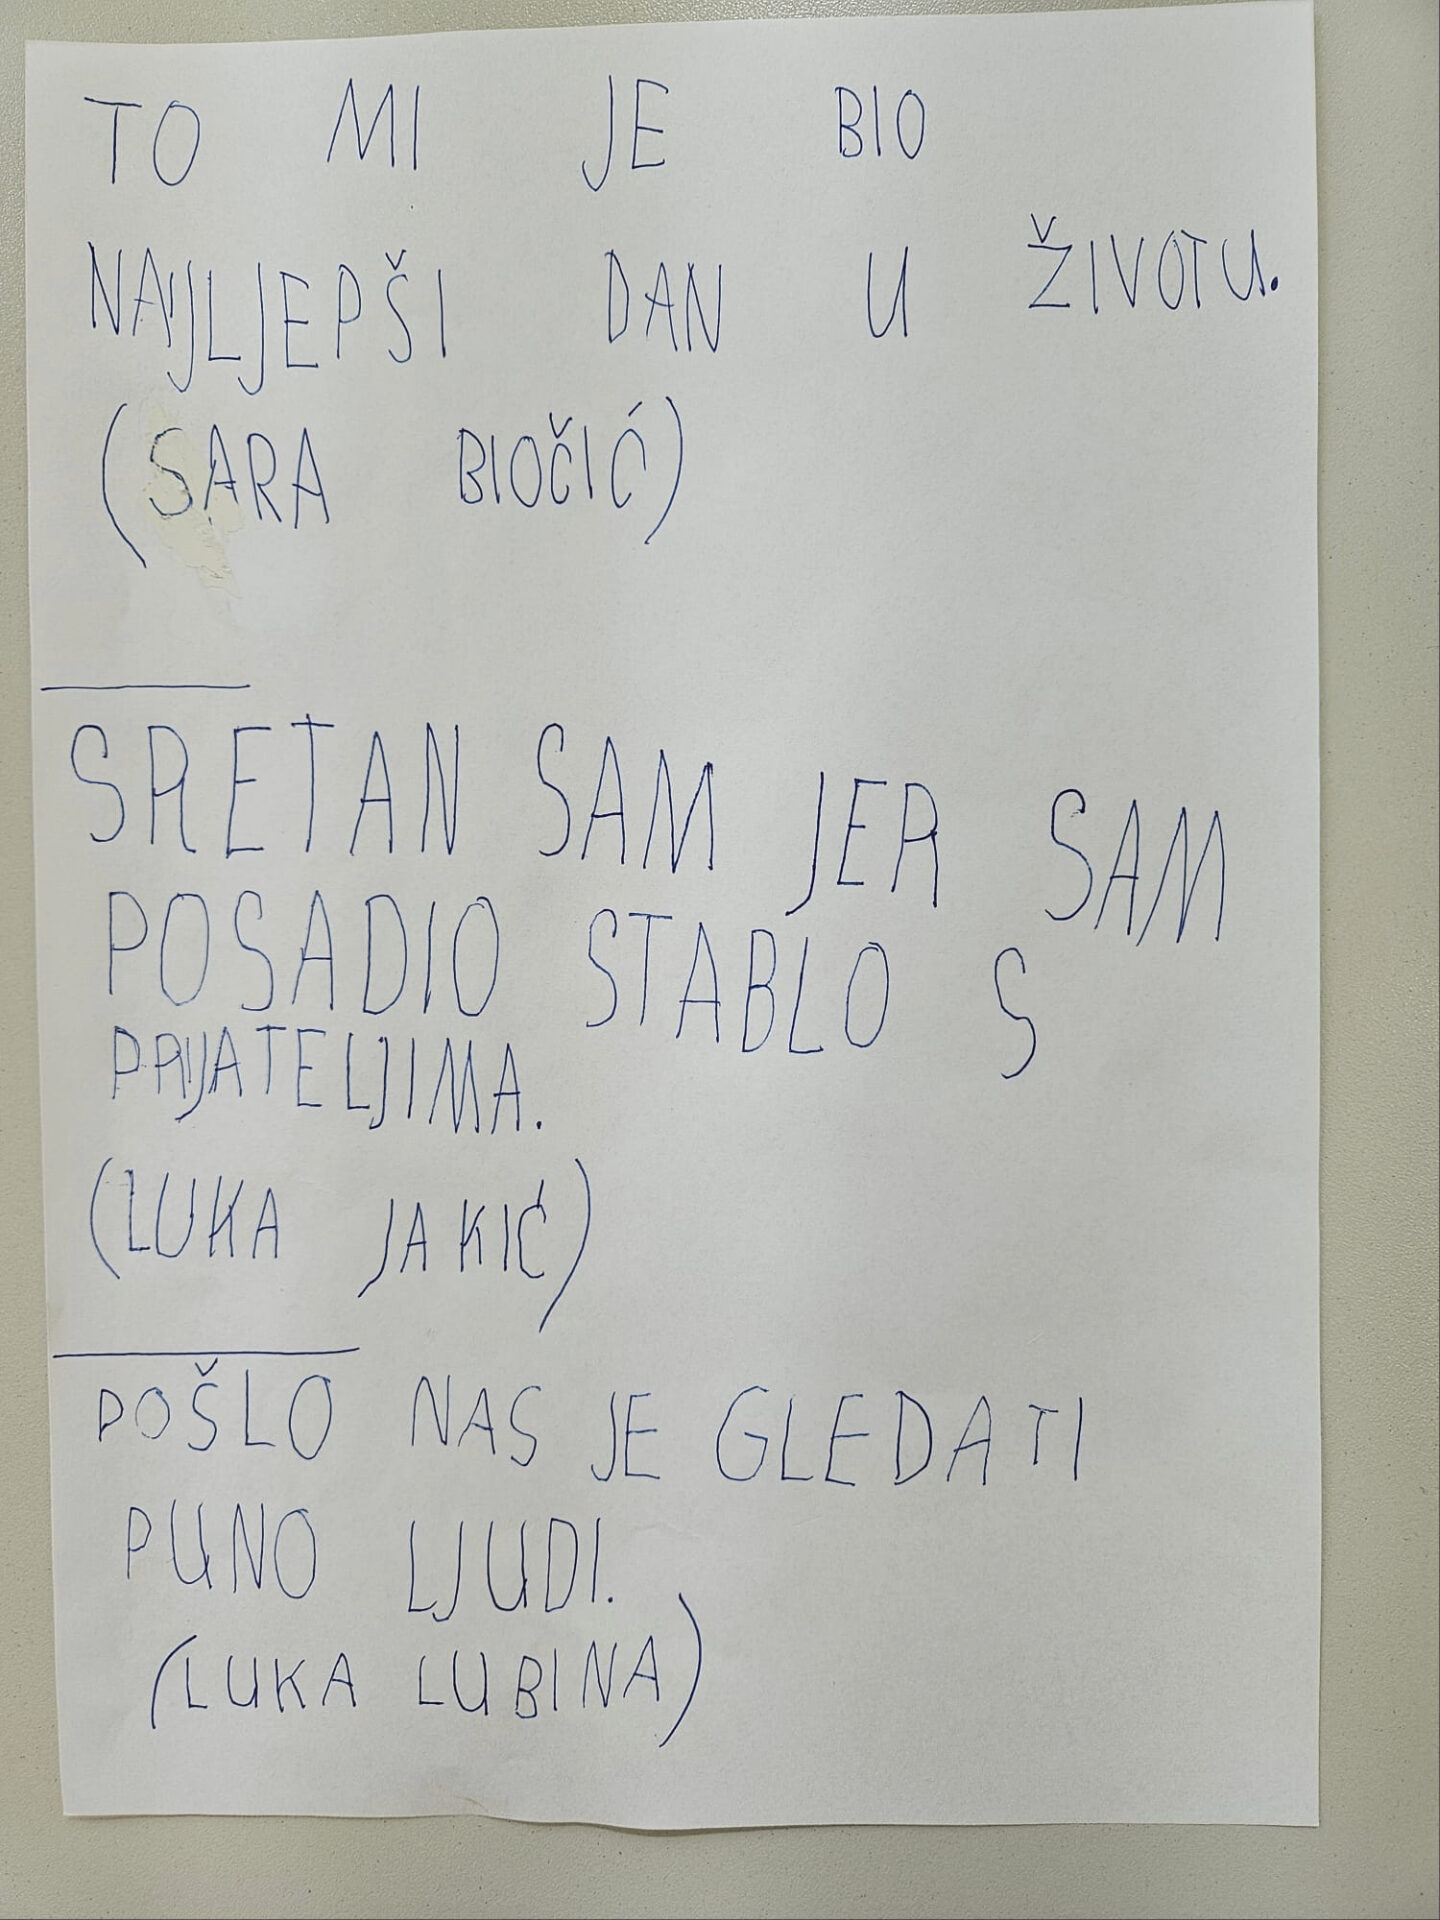 TO MI JE BIO
NAJLJEPŠI DAN U ŽIVOTU.
(SARA BIOČIĆ)
SRETAN SAM JER SAM
POSADIO STABLO S
PRIJATELJIMA.
(LUKA JAKIĆ)
POŠLO NAS JE GLEDATI
PUNO LJUDI.
(LUKA LUBINA)